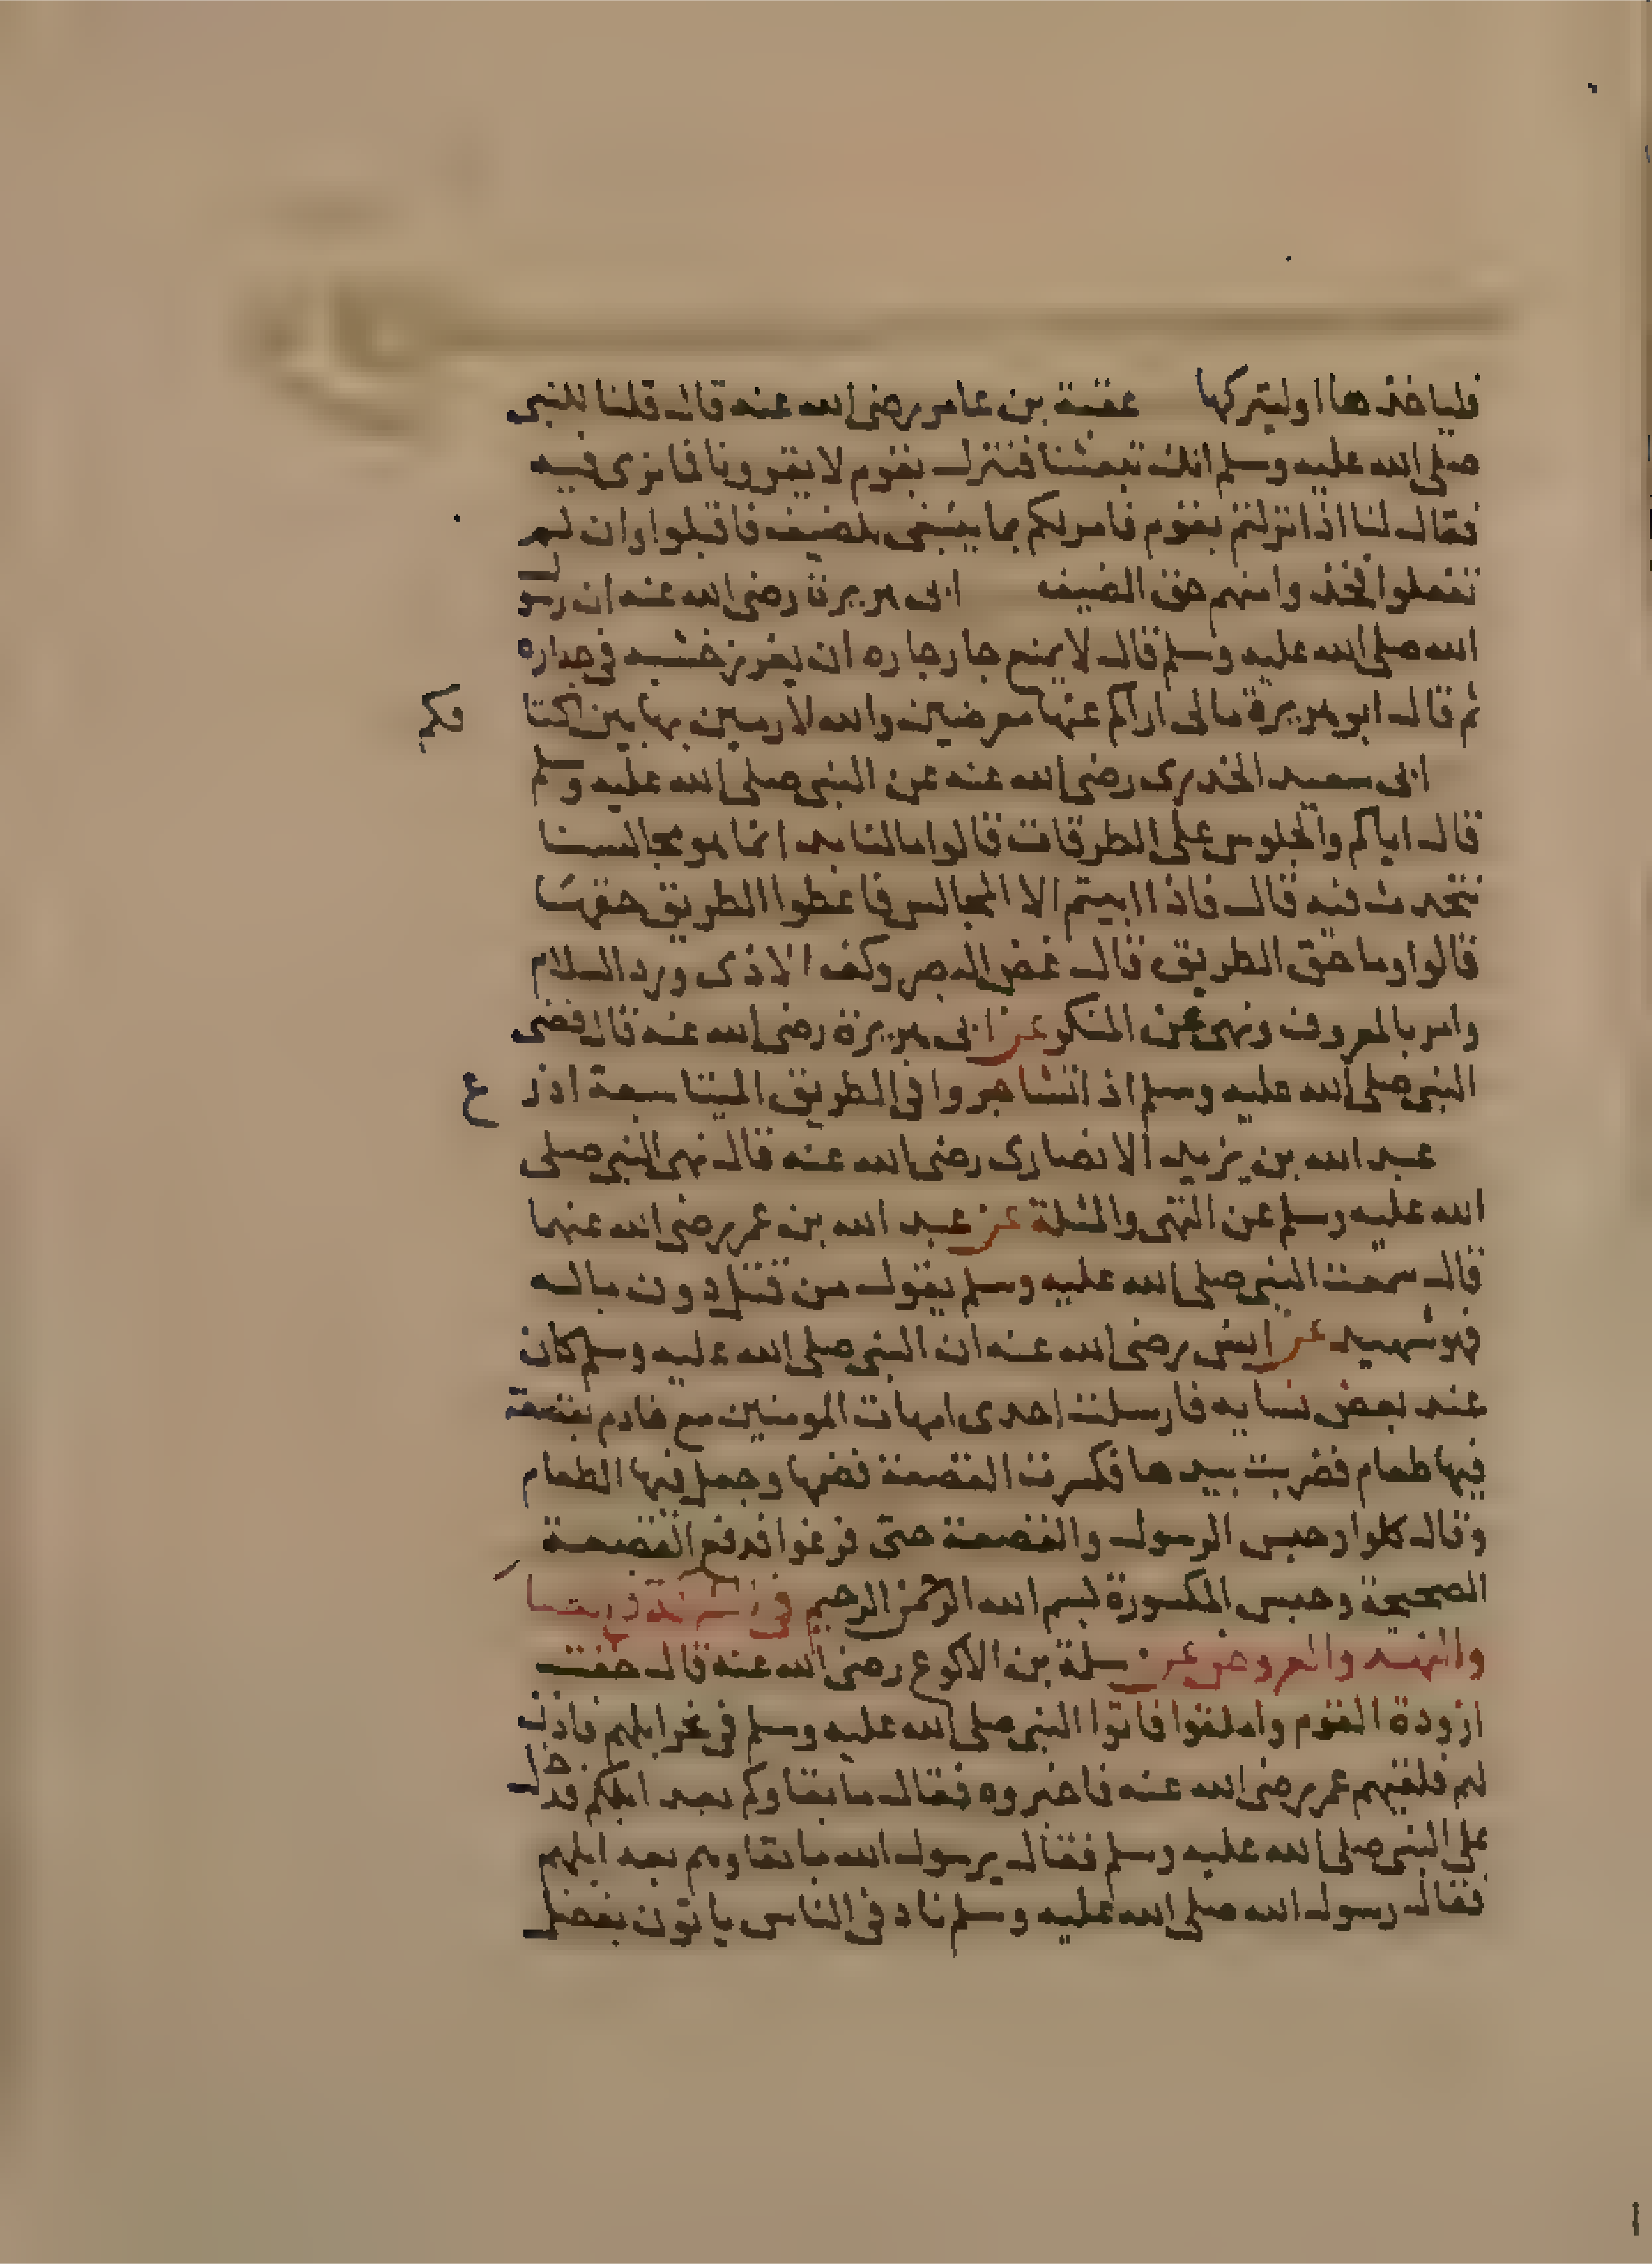 فلياخذها اوليتركها عقبة بن عامر رضى الله عنه قال قلنا للنبى
صلى الله عليه وسلم انك تبعثنا فننزل بقوم لا يقرونا فما ترى فيه
فقال لنا اذا نزلتم بقوم فامر لكم بما ينبغى للضيف فاقبلوا وان لم
تفعلوا فخذوا منهم حق الضيف ابى هريرة رضى الله عنه ان رسول
الله صلى الله عليه وسلم قال لا يمنع جار جاره ان يغرز خشبه فى جداره
ثم قال ابو هريرة مالى اراكم عنها معرضين والله لارمين بها بين اكتا
فكم
ابى سعيد الخدرى رضى الله عنه عن النبى صلى الله عليه وسلم
قال اياكم والجلوس على الطرقات قالوا مالنا بد انما هو مجالسنا
نتحدث فيه قال فاذا ابيتم الا المجالس فاعطوا الطريق حقها
قالوا وما حق الطريق قال غض البصر وكف الاذى ورد السلام
وامر بالمعروف ونهى عن المنكر عن ابى هريرة رضى الله عنه قال قضى
النبى صلى الله عليه وسلم اذا تشاجروا فى الطريق الميتا سبعة اذر
ع
عبد الله بن يزيد الانصارى رضى الله عنه قال نهى النبى صلى
الله عليه وسلم عن النهى والمثلة عن عبد الله بن عمر رضى الله عنهما
قال سمعت النبى صلى الله عليه وسلم يقول من قتل دون ماله
فهو شهيد عن انس رضى الله عنه ان النبى صلى الله عليه وسلم كان
عند بعض نسايه فارسلت احدى امهات المومنين مع خادم بقصعة
فيها طعام فضربت بيدها فكسرت القصعة فضمها وجعل فيها الطعام
وقال كلوا وحبس الرسول والقصعة حتى فرغوا فدفع القصعة
الصحيحة وحبس المكسورة بسم الله الرحمن الرحيم فى
والنهد والعروض عن سلمة بن الاكوع رضى الله عنه قال خفت
ازودة القوم واملقوا فاتوا النبى صلى الله عليه وسلم فى نحر ابلهم فاذن
لهم فلقيهم عمر رضى الله عنه فاخبروه فقال ما بقاوكم بعد ابلكم فدخل
على النبى صلى الله عليه وسلم فقال يرسول الله ما بقاوهم بعد ابلهم
فقال رسول الله صلى الله عليه وسلم ناد فى الناس ياتون بفضل